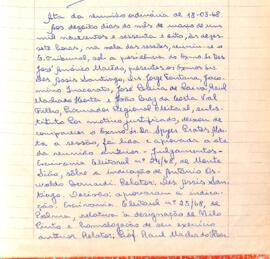 Ata da reunião ordinária de 18-03-68.
Aos dezoito dias do mês de março de um
mil novecentos e sessenta e oito, às dezes-
sete horas, na sala das sessões, reuniu-se o
E. Tribunal, sob a presidência do Exmo. Sr. Des.
José Antônio Maldo, presentes os Exmos. Srs.
Des. Jessé Santiago, Drs. Jorge Fontana, Jaco-
mino Inacarato, José Pereira de Paiva, Raul
Machado Horta e João Braz da Costa Val
Filho, Procurador Regional Eleitoral, subs-
tituto. Por motivo justificado, deixou de
comparecer o Exmo. Sr. Dr. Prates. Aber-
ta a sessão, foi lida e aprovada a ata
da reunião anterior. - Julgamentos -
Escrivania Eleitoral nº 24/68, de Monte
Sião, sobre a indicação de Antônio Os-
waldo Bernardi. Relator, Des. Jessé San-
tiago. Decisão: aprovaram a indica-
ção. Escrivania Eleitoral nº 25/68, de
relativo à designação de Nilo
Pinto e homologação de seu exercício
anterior. Relator, Prof. Raul Machado Hor-